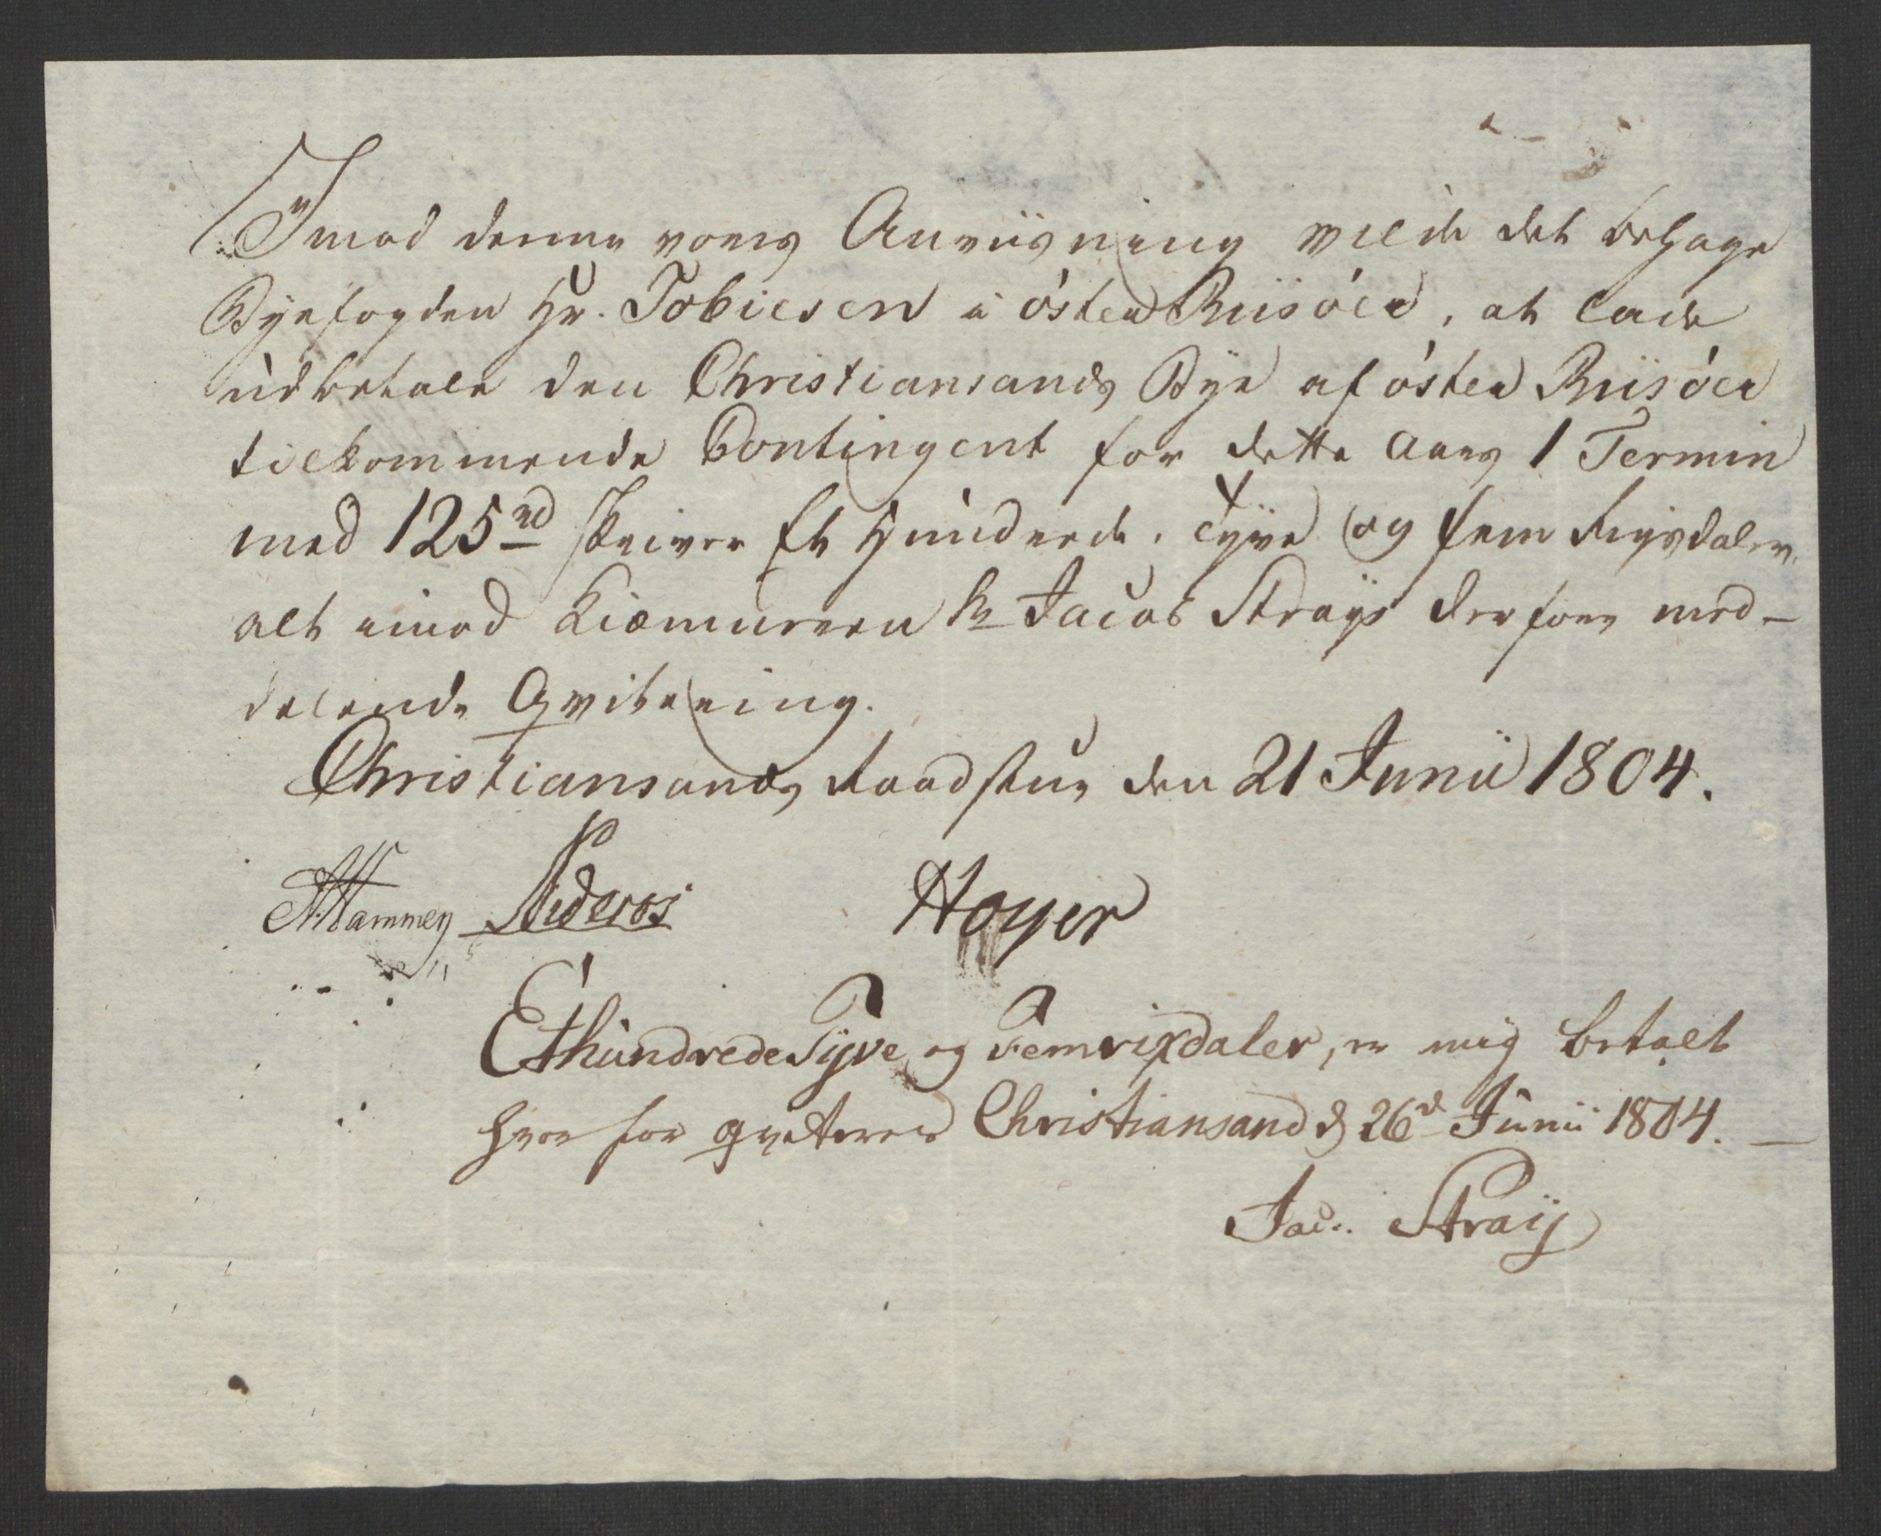 Imod denne vores Anviisning vilde det behage
Byefogden Hr. Tobiesen i öster Riisöer, at lade
udbetale den Christiansands Bye af öster Riisöer
tilkommende Contingent for dette Aars 1 Termin
med 125 rd skriver Et Hundrede, Tyve og fem Rigsdaler,
alt imod Kiæmneren Hr Jacob Strays derfore med-
delende Qvitering.
Christiansands Raadstue den 21 Junii 1804.
Nideros Hoyer
Ethundrede Tyve og Femrixdaler, er mig betalt
hvor for qviterer Christiansand d 26d Junii 1804.
Jac. Straÿ